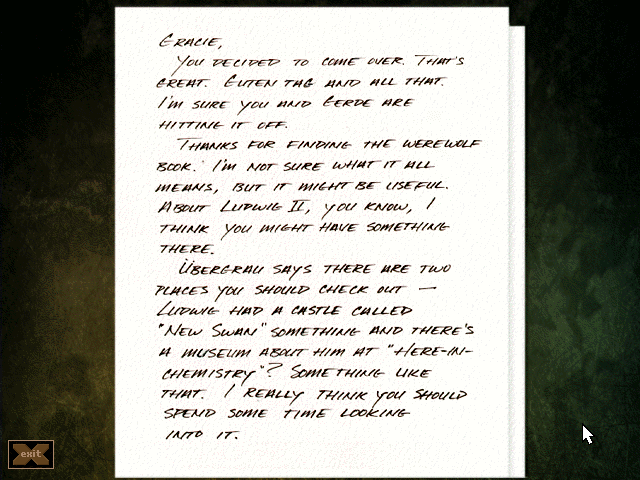 Gracie,
You decided to come over. That's
great. Guten tag and all that.
I'm sure you and Gerde are
hitting it off.
Thanks for finding the werewolf
book. I'm not sure what it all
means, but it might be useful.
About Ludwig II, you know, I
think you might have something
there.
Übergrau says there are two
places you should check out —
Ludwig had a castle called
"New Swan" something and there's
a museum about him at "Here-in-
chemistry"? Something like
that. I really think you should
spend some time looking
into it.
exit